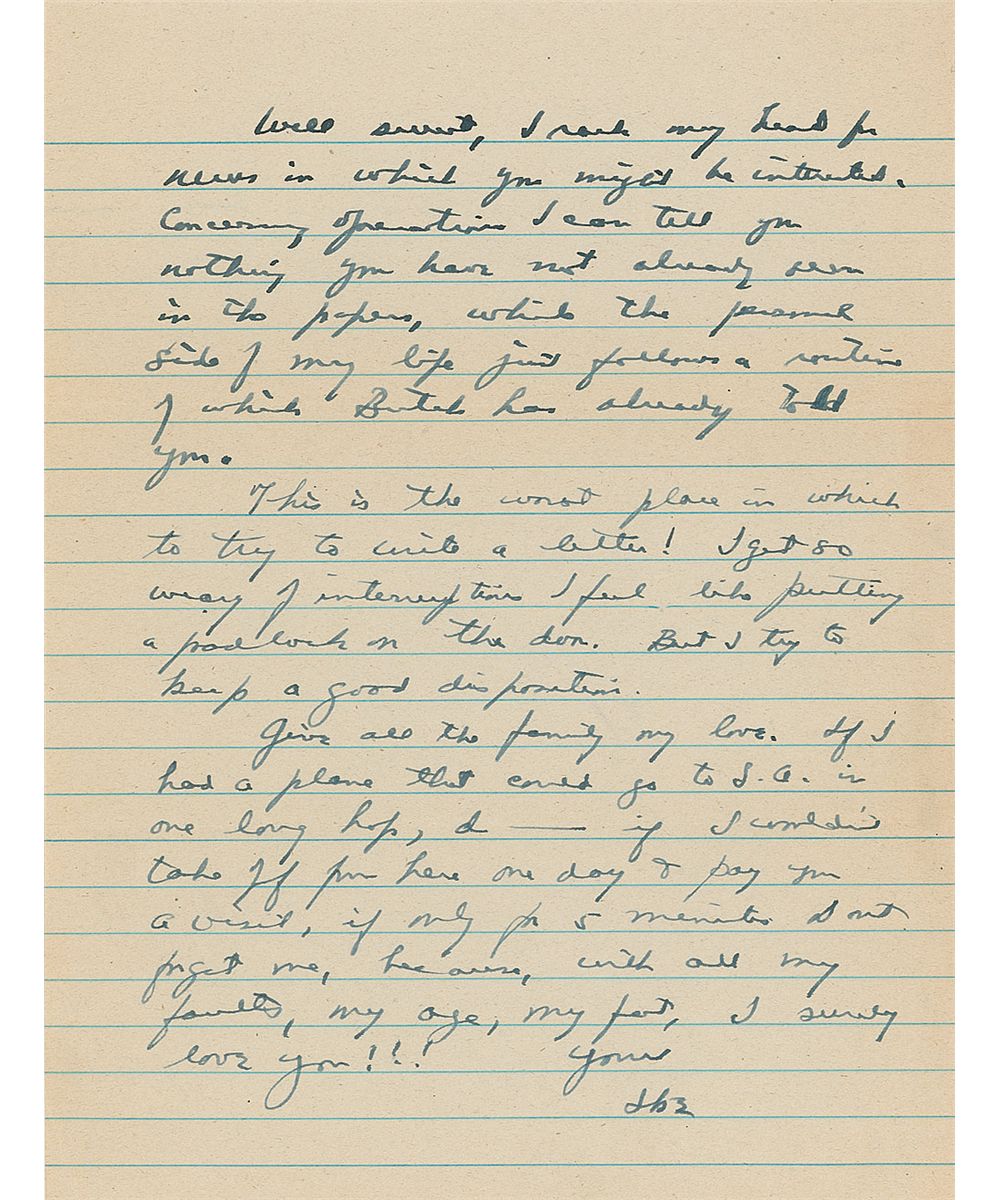 Well sweet, I rack my head for
news in which you might be interested.
Concerning operations I can tell you
nothing you have not already seen
in the papers, while the personal
side of my life just follows a routine
of which Butch has already told
you.
This is the worst place in which
to try to write a letter! I get so
weary of interruptions I feel like putting
a padlock on the door. But I try to
keep a good disposition.
Give all the family my love. If I
had a plane that could go to S.A. in
one long hop, d—— if I wouldn't
take off from here one day & pay you
a visit, if only for 5 minutes. Don't
forget me, because, with all my
faults, my age, my fat, I surely
love you!!! Your
Ike